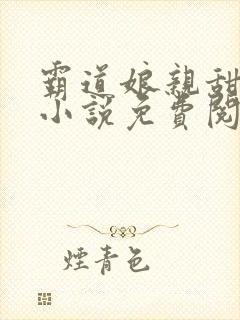 霸道娘親甜
小說免費閱
煙青色